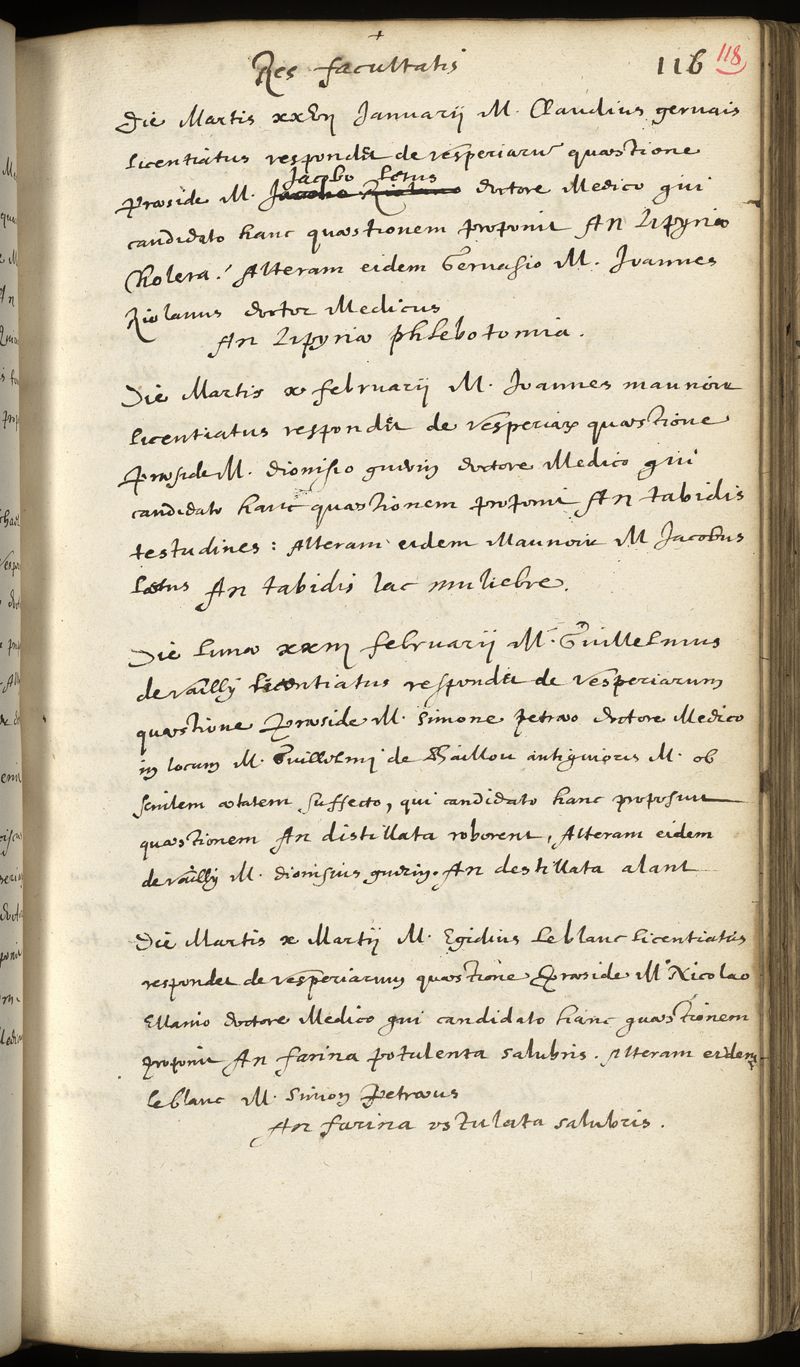 Res facultatis 116 118
Die Martis xxvii Januarij M. Claudius gervais
licentiatus respondet de vesperiarum quæstione
Jacobo Letus
præside M. Jacobo Riolano doctore Medico qui
candidato hanc quæstionem proponit An Lipyriæ
Cholera? Alteram eidem Gervasio M. Joannes
Riolanus doctor Medicus
An Lipyriæ phlebotomia.
Die Martis x februarij M. Joannes maunoir
licentiatus respondet de vesperiar quæstione
præside M. dionisio guerin doctore Medico qui
candidato hanc quæstionem proponit An tabidis
testudines : Alteram eidem Maunoir M Jacobus
Lætus An tabidis lac muliebre.
Die Lunæ xxiii februarij M. Guillelmus
de vailly licentiatus respondet de vesperiarum
quæstione Præside M. Simone petræo doctore Medico
in locum M. Guillelmi de Baillou antiquioris M. ob
senilem ætatem suffecto, qui candidato hanc proposuit
quæstionem An distillata roborent, Alteram eidem
de vailly M. dionisius guerin. An destillata alant
Die Martis x Martij M. Egidius Leblanc Licentiatus
respondet de vesperiarum quæstione Præside M. Nicolao
Ellanio doctore Medico qui candidato hanc quæstionem
proponit An farina potulenta salubris. Alteram eidem
leblanc M. Simon Petræus
An farina ustulata salubris.